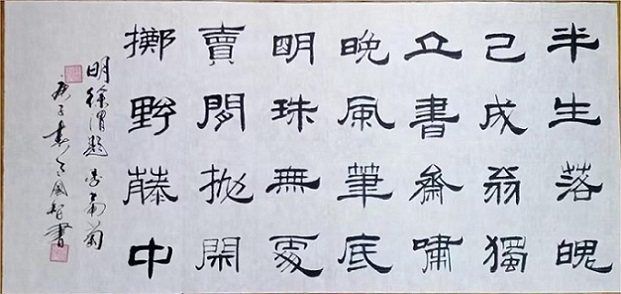 半生落魄
己成翁獨
立書齋嘯
晚風筆底
明珠無處
賣閒抛閑
擲野藤中
明徐渭題葡萄
庚子書